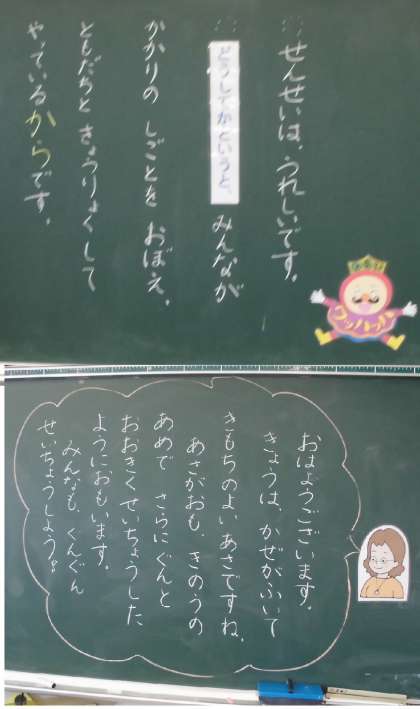 せんせいは、うれしいです。
どうしてかというと、みんなが
かかりの しごとを おぼえ、
ともだちと きょうりょくして
やっているからです。
クッハッハ
おはようございます。
きょうは、かぜがふいて
きもちのよい あさですね。
あさがおも、きのうの
あめで さらに ぐんと
おおきく せいちょうした
ように おもいます。
みんなも、ぐんぐん
せいちょうしよう。